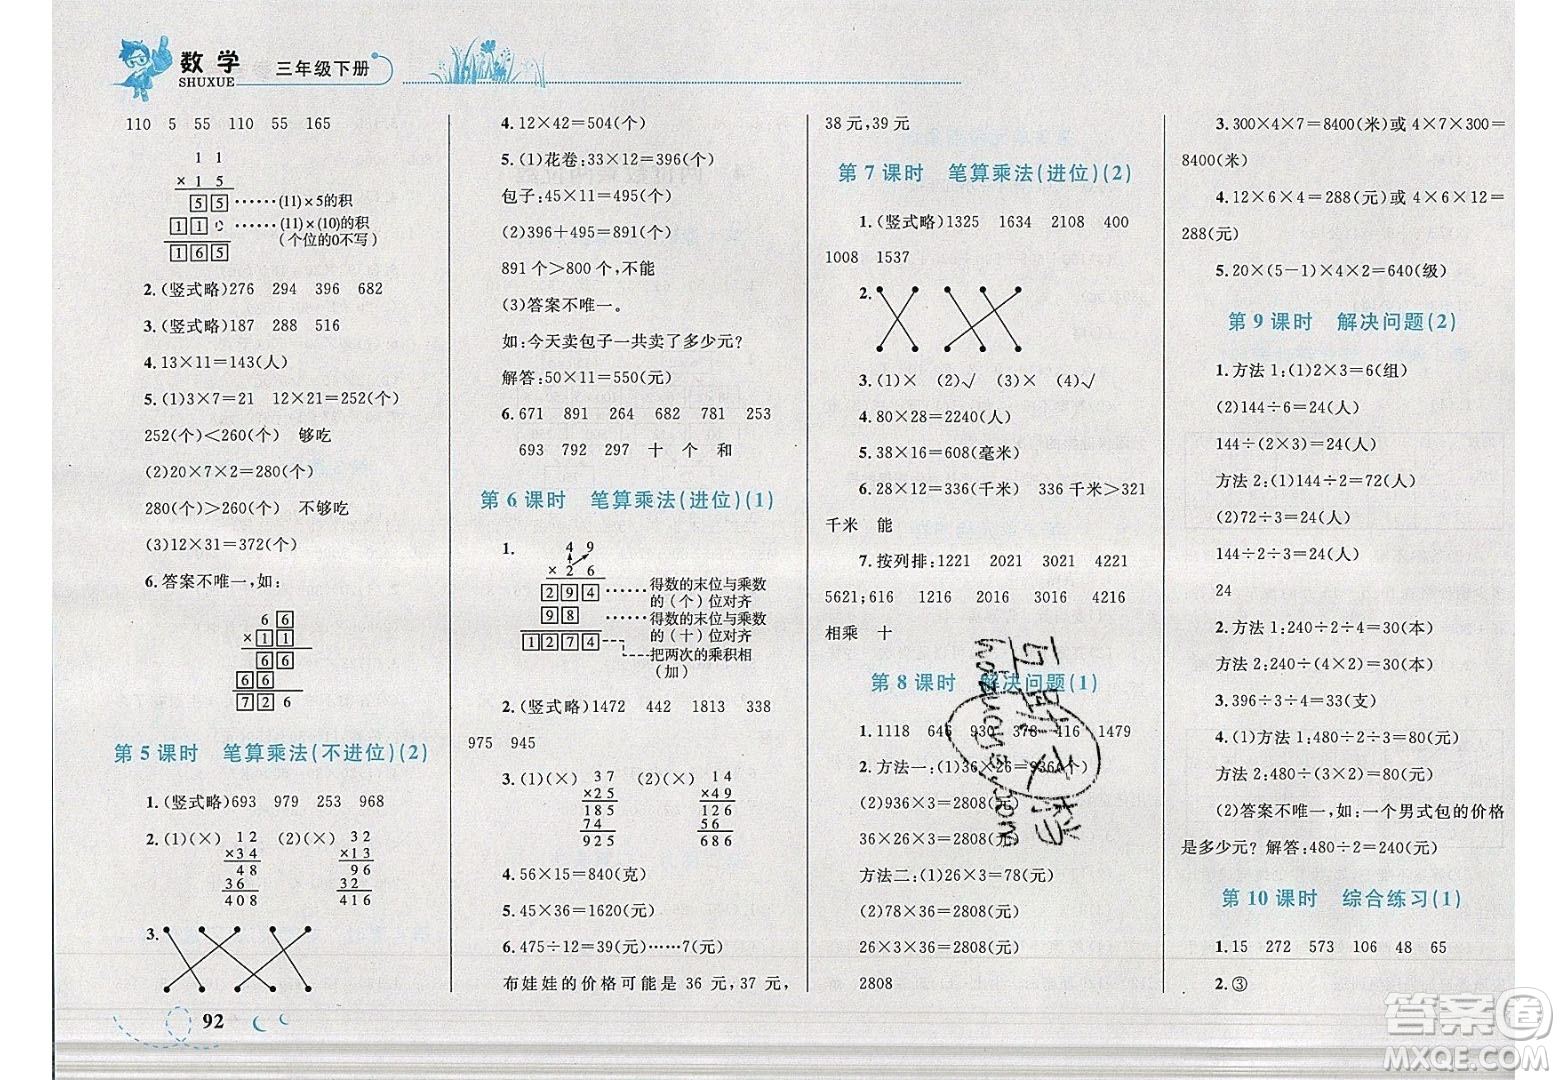 数学
SHUXUE
三年级下册
110 5 55 110 55 165
1 1
× 1 5
5 5 ……(11)×5的积
1 1 ……(11)×(10)的积
(个位的0不写)
1 6 5
2.(竖式略)276 294 396 682
3.(竖式略)187 288 516
4.13×11=143(人)
5.(1)3×7=21 12×21=252(个)
252(个)<260(个) 够吃
(2)20×7×2=280(个)
280(个)>260(个) 不够吃
(3)12×31=372(个)
6.答案不唯一,如:
6 6
×1 1
6 6
6 6
7 2 6
第 5 课时 笔算乘法(不进位)(2)
1.(竖式略)693 979 253 968
2.(1)(×) 1 2 (2)(×) 3 2
×3 4 ×1 3
4 8 9 6
3 6 3 2
4 0 8 4 1 6
3.
92
4.12×42=504(个)
5.(1)花卷:33×12=396(个)
包子:45×11=495(个)
(2)396+495=891(个)
891 个>800 个,不能
(3)答案不唯一。
如:今天卖包子一共卖了多少元?
解答:50×11=550(元)
6.671 891 264 682 781 253
693 792 297 十 个 和
第 6 课时 笔算乘法(进位)(1)
1. 4 9
× 2 6
2 9 4 ……得数的末位与乘数
的(个)位对齐
9 8 ……得数的末位与乘数
的(十)位对齐
1 2 7 4 把两次的乘积相
(加)
2.(竖式略)1472 442 1813 338
975 945
3.(1)(×) 3 7 (2)(×) 1 4
×2 5 ×4 9
1 8 5 1 2 6
7 4 5 6
9 2 5 6 8 6
4.56×15=840(克)
5.45×36=1620(元)
6.475÷12=39(元)……7(元)
布娃娃的价格可能是 36 元,37 元,
38 元,39 元
第 7 课时 笔算乘法(进位)(2)
1.(竖式略)1325 1634 2108 400
1008 1537
2.
3.(1)× (2)√ (3)× (4)√
4.80×28=2240(人)
5.38×16=608(毫米)
6.28×12=336(千米) 336 千米>321
千米 能
7.按列排:1221 2021 3021 4221
5621;616 1216 2016 3016 4216
相乘 十
第 8 课时 解决问题(1)
1.1118 646 930 378 416 1479
2.方法一:(1)36×26=936(个)
(2)936×3=2808(元)
36×26×3=2808(元)
方法二:(1)26×3=78(元)
(2)78×36=2808(元)
26×3×36=2808(元)
2808
3.300×4×7=8400(米)或 4×7×300=
8400(米)
4.12×6×4=288(元)或 4×6×12=
288(元)
5.20×(5-1)×4×2=640(级)
第 9 课时 解决问题(2)
1.方法 1:(1)2×3=6(组)
(2)144÷6=24(人)
144÷(2×3)=24(人)
方法 2:(1)144÷2=72(人)
(2)72÷3=24(人)
144÷2÷3=24(人)
24
2.方法 1:240÷2÷4=30(本)
方法 2:240÷(2×4)=30(本)
3.396÷3÷4=33(支)
4.(1)方法 1:480÷2÷3=80(元)
方法 2:480÷(3×2)=80(元)
(2)答案不唯一,如:一个男式包的价格
是多少元? 解答:480÷2=240(元)
第 10 课时 综合练习(1)
1.15 272 573 106 48 65
2.③
答案圈
MXQE.COM